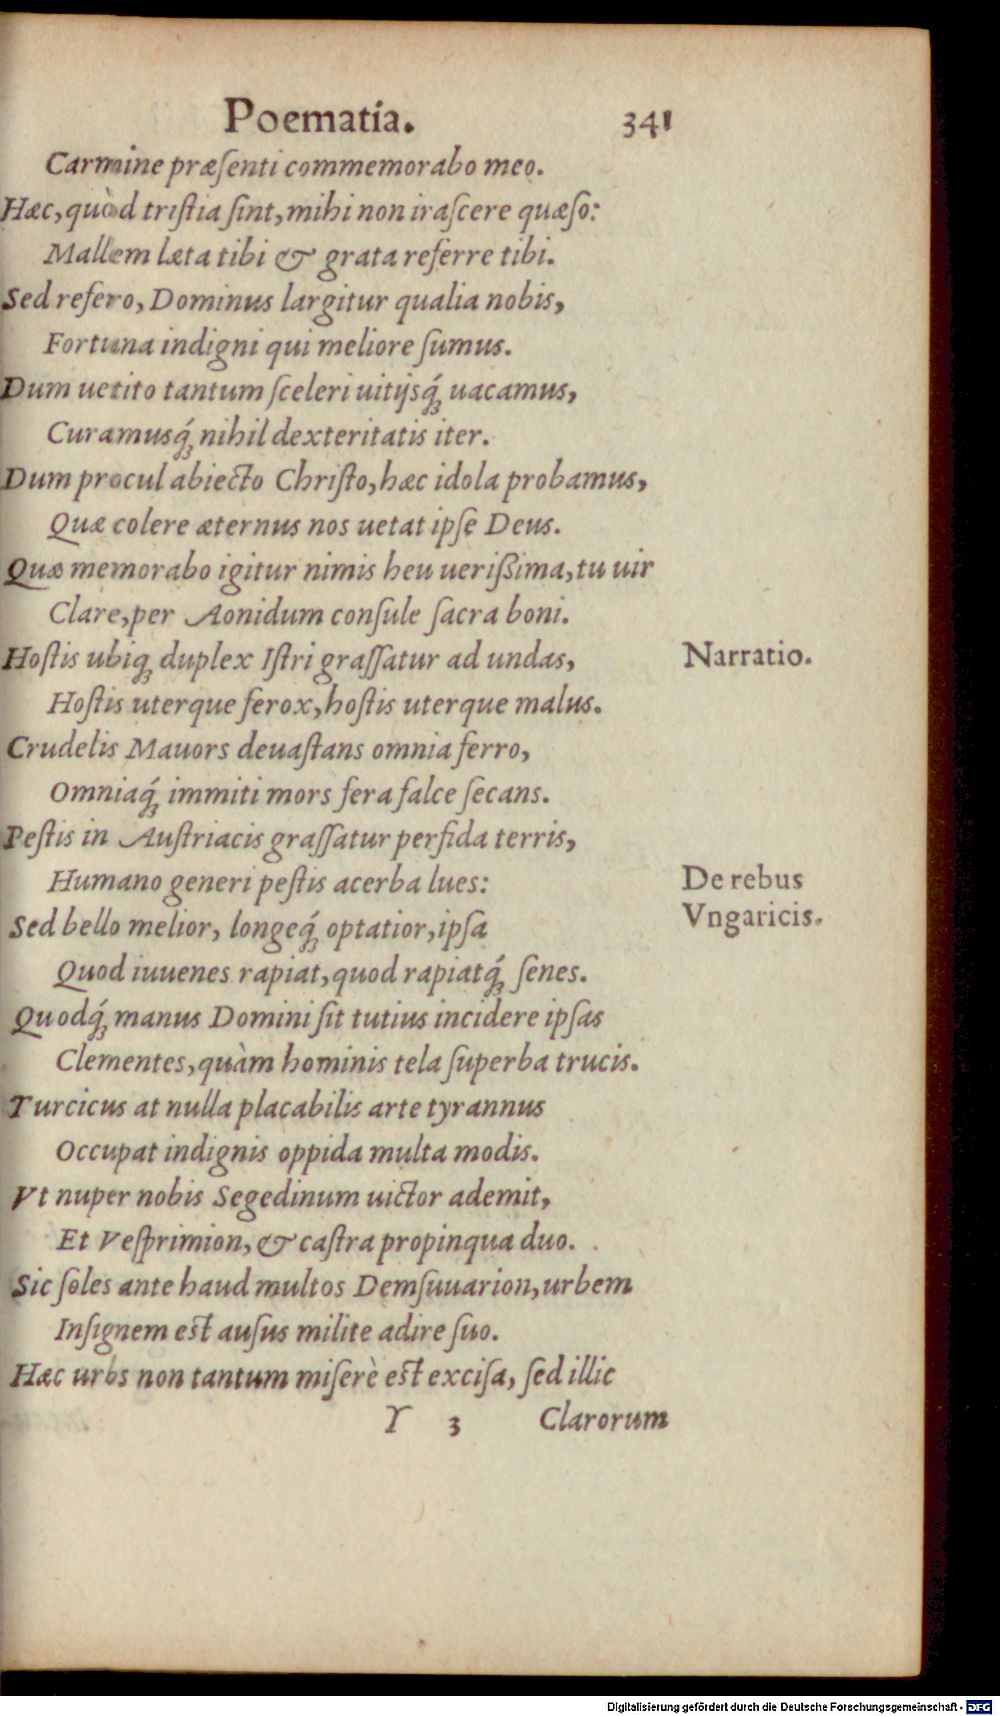 Poematia. 341
Carmine præſenti commemorabo meo.
Hæc, quòd triſtia ſint, mihi non iraſcere quæſo:
Mallem læta tibi & grata referre tibi.
Sed refero, Dominus largitur qualia nobis,
Fortuna indigni qui meliore ſumus.
Dum uetito tantum ſceleri uitijsq́ꝫ uacamus,
Curamusq́ꝫ nihil dexteritatis iter.
Dum procul abiecto Chriſto, hæc idola probamus,
Quæ colere æternus nos uetat ipſe Deus.
Quæ memorabo igitur nimis heu uerißima, tu uir
Clare, per Aonidum conſule ſacra boni.
Hoſtis ubiqꝫ duplex Iſtri graſſatur ad undas,
Narratio.
Hoſtis uterque ferox, hoſtis uterque malus.
Crudelis Mauors deuaſtans omnia ferro,
Omniaq́ꝫ immiti mors fera falce ſecans.
Peſtis in Auſtriacis graſſatur perfida terris,
Humano generi peſtis acerba lues:
De rebus
Vngaricis.
Sed bello melior, longeq́ꝫ optatior, ipſa
Quod iuuenes rapiat, quod rapiatq́ꝫ ſenes.
Quodq́ꝫ manus Domini ſit tutius incidere ipſas
Clementes, quàm hominis tela ſuperba trucis.
Turcicus at nulla placabilis arte tyrannus
Occupat indignis oppida multa modis.
Vt nuper nobis Segedinum uictor ademit,
Et Veſprimion, & caſtra propinqua duo.
Sic ſoles ante haud multos Demſuuarion, urbem
Inſignem est auſus milite adire ſuo.
Hæc urbs non tantum miſerè est exciſa, ſed illic
Y 3 Clarorum
Digitalisierung gefördert durch die Deutsche Forschungsgemeinschaft - DFG